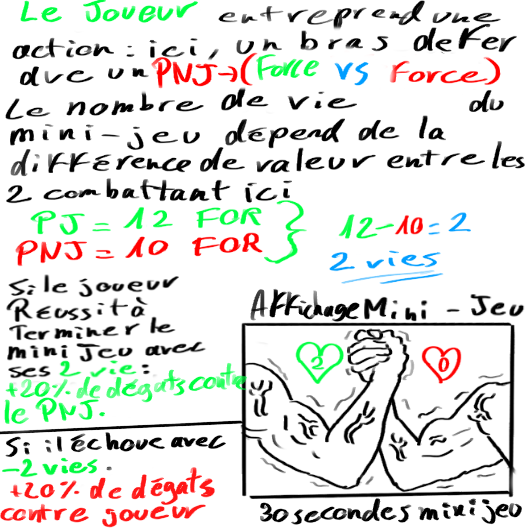 Le Joueur entreprend une
action : ici, un bras de fer
avc un PNJ → (Force VS Force)
Le nombre de vie du
mini-jeu dépend de la
différence de valeur entre les
2 combattant ici
PJ = 12 FOR
PNJ = 10 FOR
12-10=2
2 vies
Si le joueur
Réussit à
Terminer le
mini Jeu avec
ses 2 vie :
+20% de dégats contre
le PNJ.
Si il échoue avec
-2 vies.
+20% de dégats
contre joueur
Affichage Mini - Jeu
2
0
30 secondes mini jeu